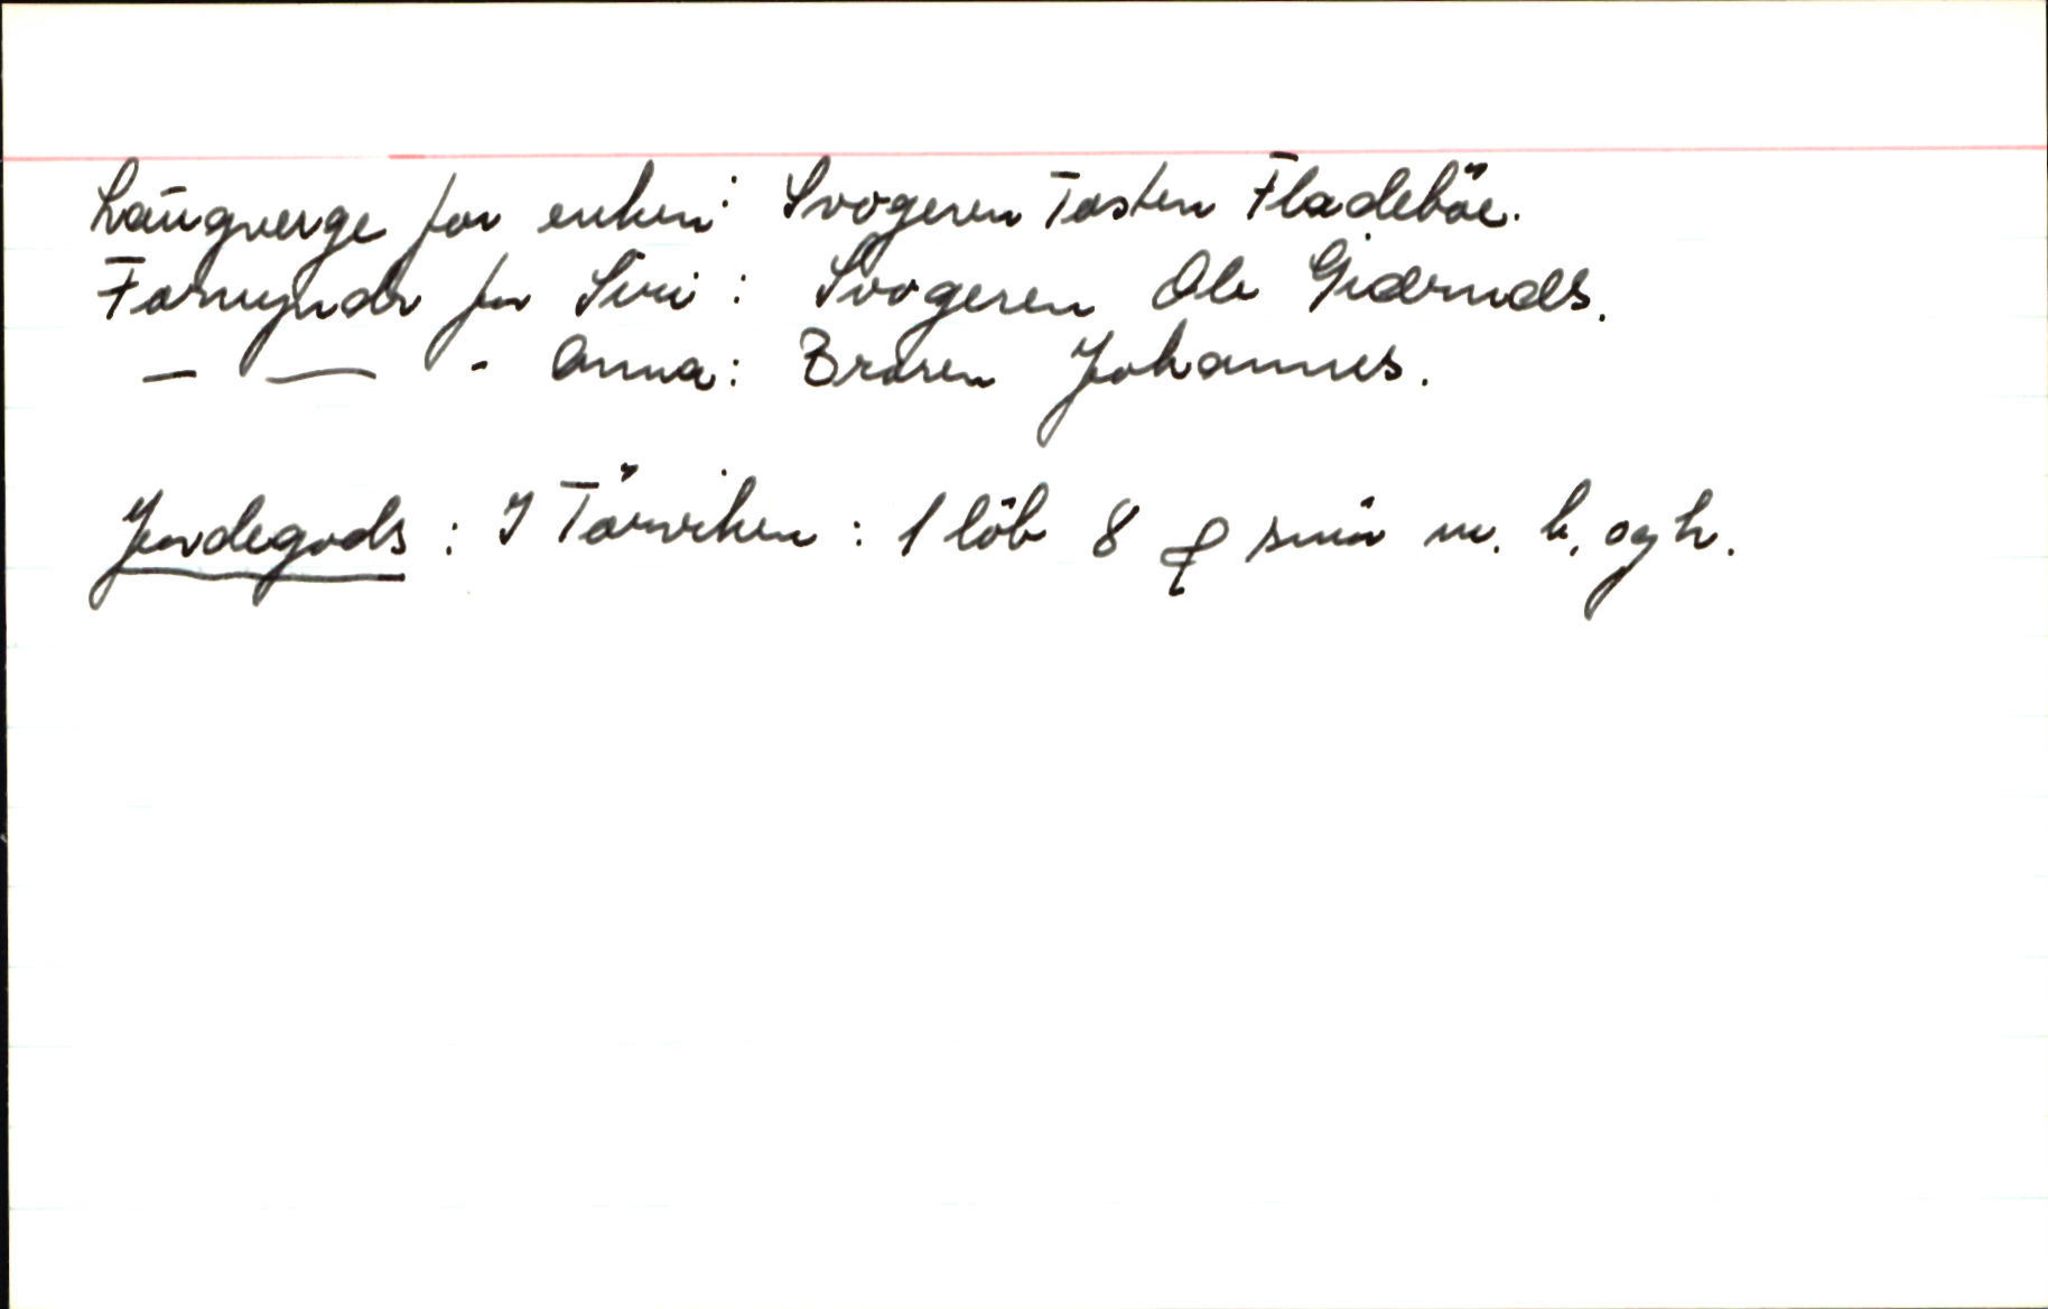 Laugverge for enken: Svogeren Tosten Fladeböe.
Formynder for Siri: Svogeren Ole Giermds.
— — - Anna: Broren Johannes.
Jordegods: I Törviken: 1 löb 8 ꝑ smör m. b. og h.